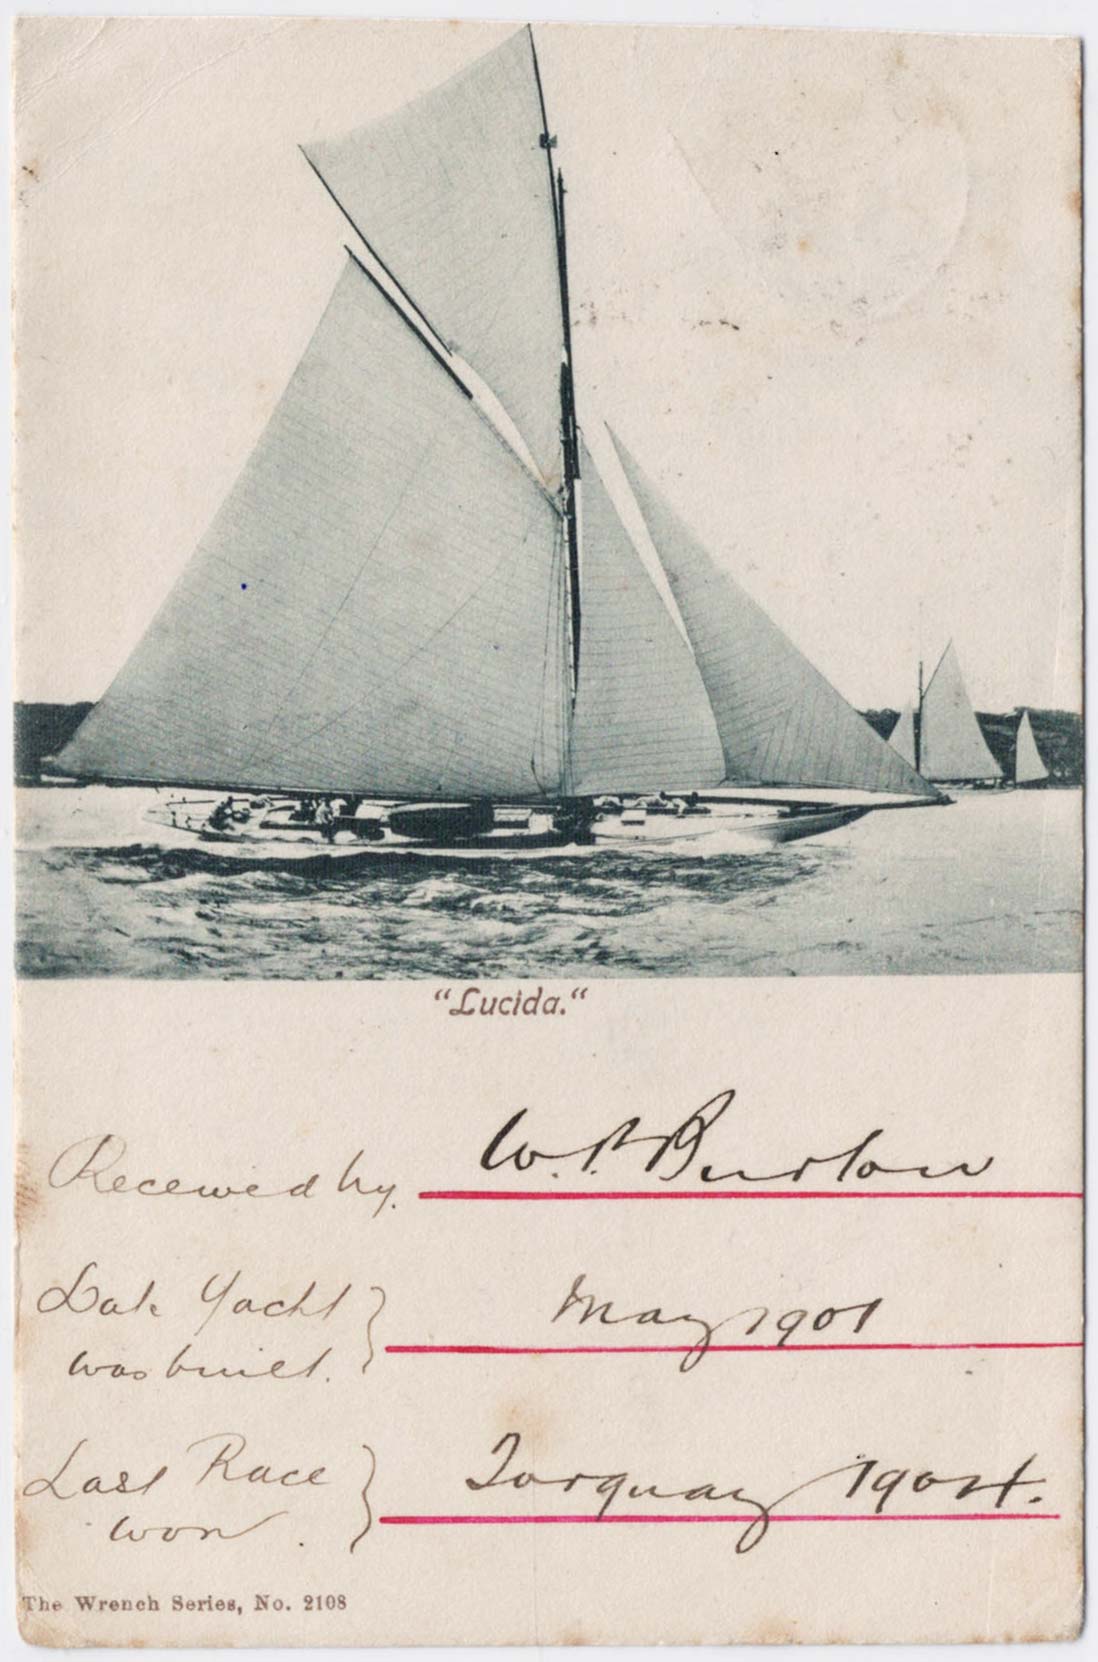 "Lucida."
Received by. W. P. Burton
Date Yacht was built. } May 1901
Last Race won. } Torquay 1904.
The Wrench Series, No. 2108